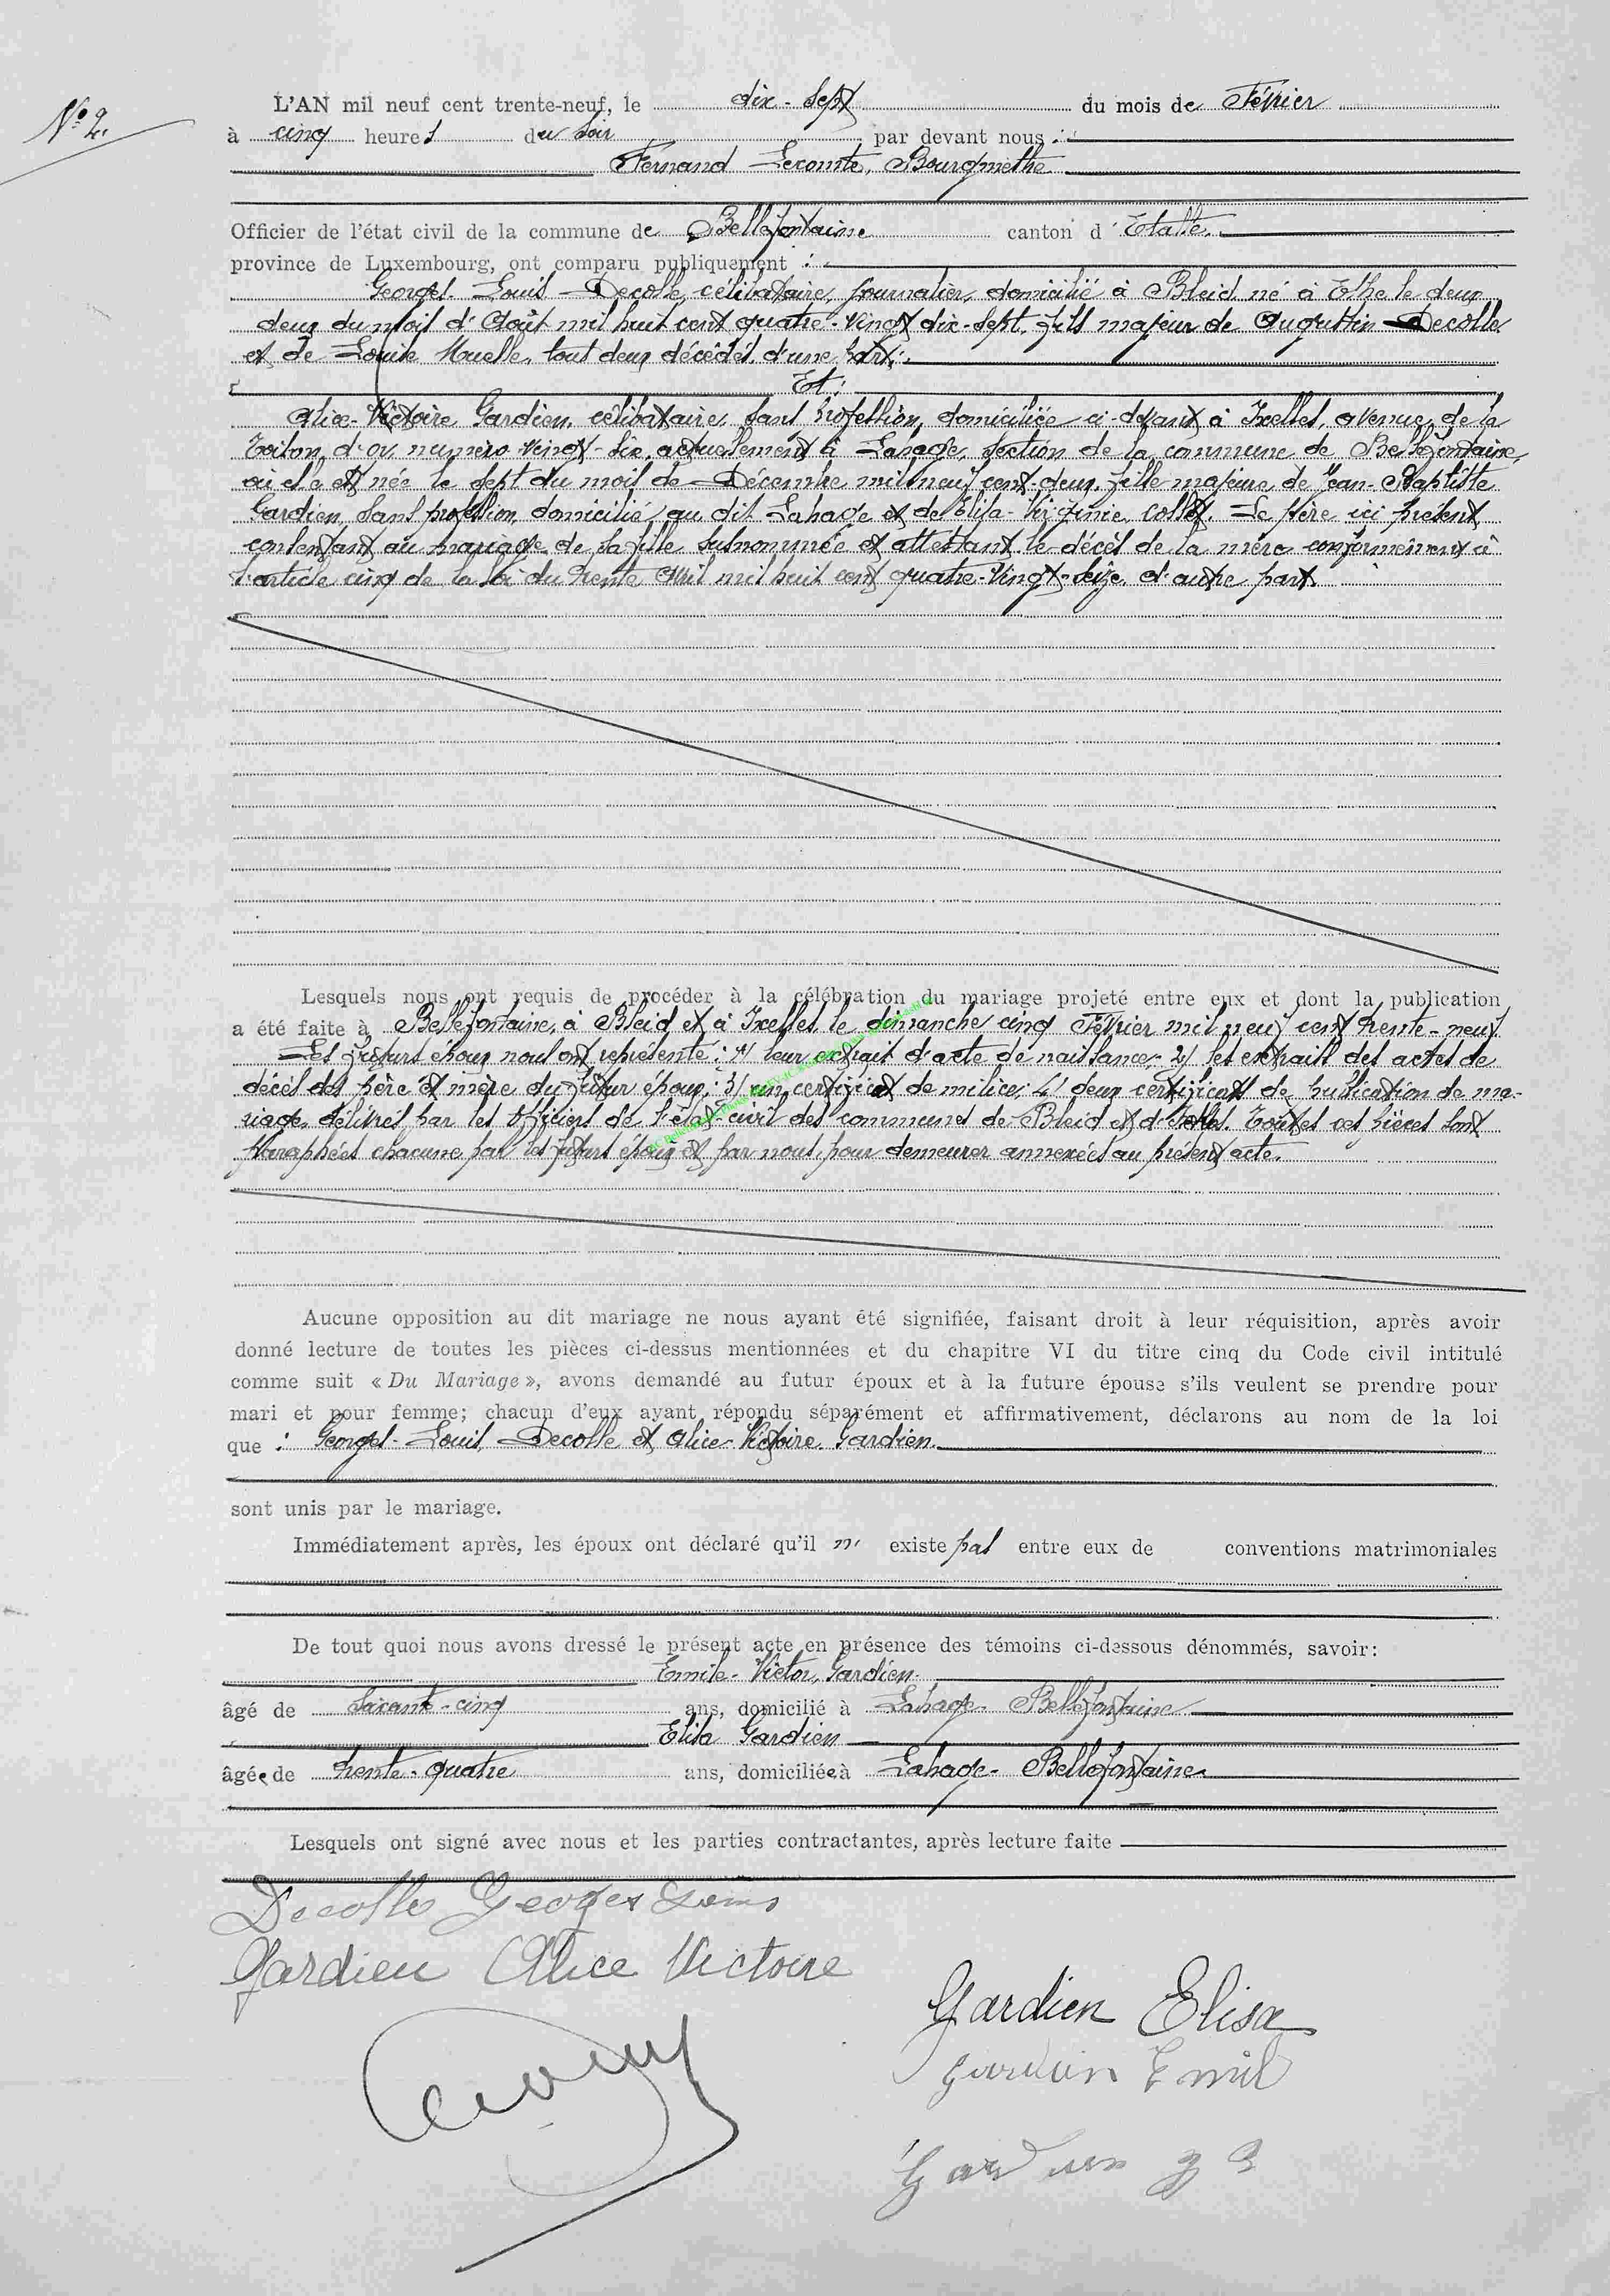 N° 2.
L'AN mil neuf cent trente-neuf, le dix-sept du mois de Février
à cinq heures du soir par devant nous :
Fernand Lecomte, Bourgmestre
Officier de l'état civil de la commune de Bellefontaine canton d'Etalle.
province de Luxembourg, ont comparu publiquement :
Georges-Louis Decolle, célibataire, journalier, domicilié à Bleid né à Ethe le deux
deux du mois d'Août mil huit cent quatre-vingt dix-sept, fils majeur de Augustin Decolle
et de Louise Muelle, tout deux décédés. d'une part;
Et:
Alice-Victoire Gardien, célibataire, sans profession, domiciliée ci-devant à Ixelles, avenue de la
Toison d'or, numéro vingt-six, actuellement à Lahage, section de la commune de Bellefontaine,
où elle est née le sept du mois de Décembre mil neuf cent deux, fille majeure de Jean-Baptiste
Gardien, sans profession, domicilié au dit Lahage et de Elisa-Virginie Collet. Le père ici présent
consentant au mariage de sa fille susnommée et attestant le décès de la mère conformément à
l'article cinq de la loi du trente Avril mil huit cent quatre-vingt-seize, d'autre part.
Lesquels nous ont requis de procéder à la célébration du mariage projeté entre eux et dont la publication
a été faite à Bellefontaine, à Bleid et à Ixelles le dimanche cinq Février mil neuf cent trente-neuf.
Les futurs époux nous ont représenté : 1/ leur extrait d'acte de naissance; 2/ les extraits des actes de
décès des père et mère du futur époux; 3/ un certificat de milice; 4/ deux certificats de publication de ma-
riage, délivrés par les Officiers de l'état-civil des communes de Bleid et d'Ixelles. Toutes ces pièces sont
paraphées chacune par les futurs époux et par nous, pour demeurer annexées au présent acte.
Aucune opposition au dit mariage ne nous ayant été signifiée, faisant droit à leur réquisition, après avoir
donné lecture de toutes les pièces ci-dessus mentionnées et du chapitre VI du titre cinq du Code civil intitulé
comme suit « Du Mariage », avons demandé au futur époux et à la future épouse s'ils veulent se prendre pour
mari et pour femme; chacun d'eux ayant répondu séparément et affirmativement, déclarons au nom de la loi
que : Georges-Louis Decolle et Alice-Victoire Gardien.
sont unis par le mariage.
Immédiatement après, les époux ont déclaré qu'il n' existe pas entre eux de conventions matrimoniales
De tout quoi nous avons dressé le présent acte en présence des témoins ci-dessous dénommés, savoir:
Emile-Victor Gardien
âgé de soixante-cinq ans, domicilié à Lahage-Bellefontaine
Elisa Gardien
âgée de trente-quatre ans, domiciliée à Lahage-Bellefontaine
Lesquels ont signé avec nous et les parties contractantes, après lecture faite
Decolle Georges Louis
Gardien Alice Victoire
Gardien Elisa
Gardien Emil
Gardien J B